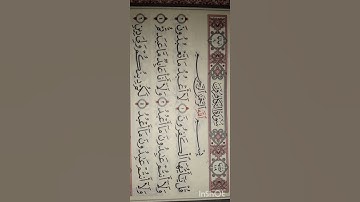 سُورَةُ الْكَافِرُونَ
بِسْمِ اللَّهِ الرَّحْمَٰنِ الرَّحِيمِ
قُلْ يَا أَيُّهَا الْكَافِرُونَ ۝ لَا أَعْبُدُ مَا تَعْبُدُونَ ۝
وَلَا أَنْتُمْ عَابِدُونَ مَا أَعْبُدُ ۝ وَلَا أَنَا عَابِدٌ مَا عَبَدْتُمْ ۝
وَلَا أَنْتُمْ عَابِدُونَ مَا أَعْبُدُ ۝ لَكُمْ دِينُكُمْ وَلِيَ دِينِ ۝
InShOt